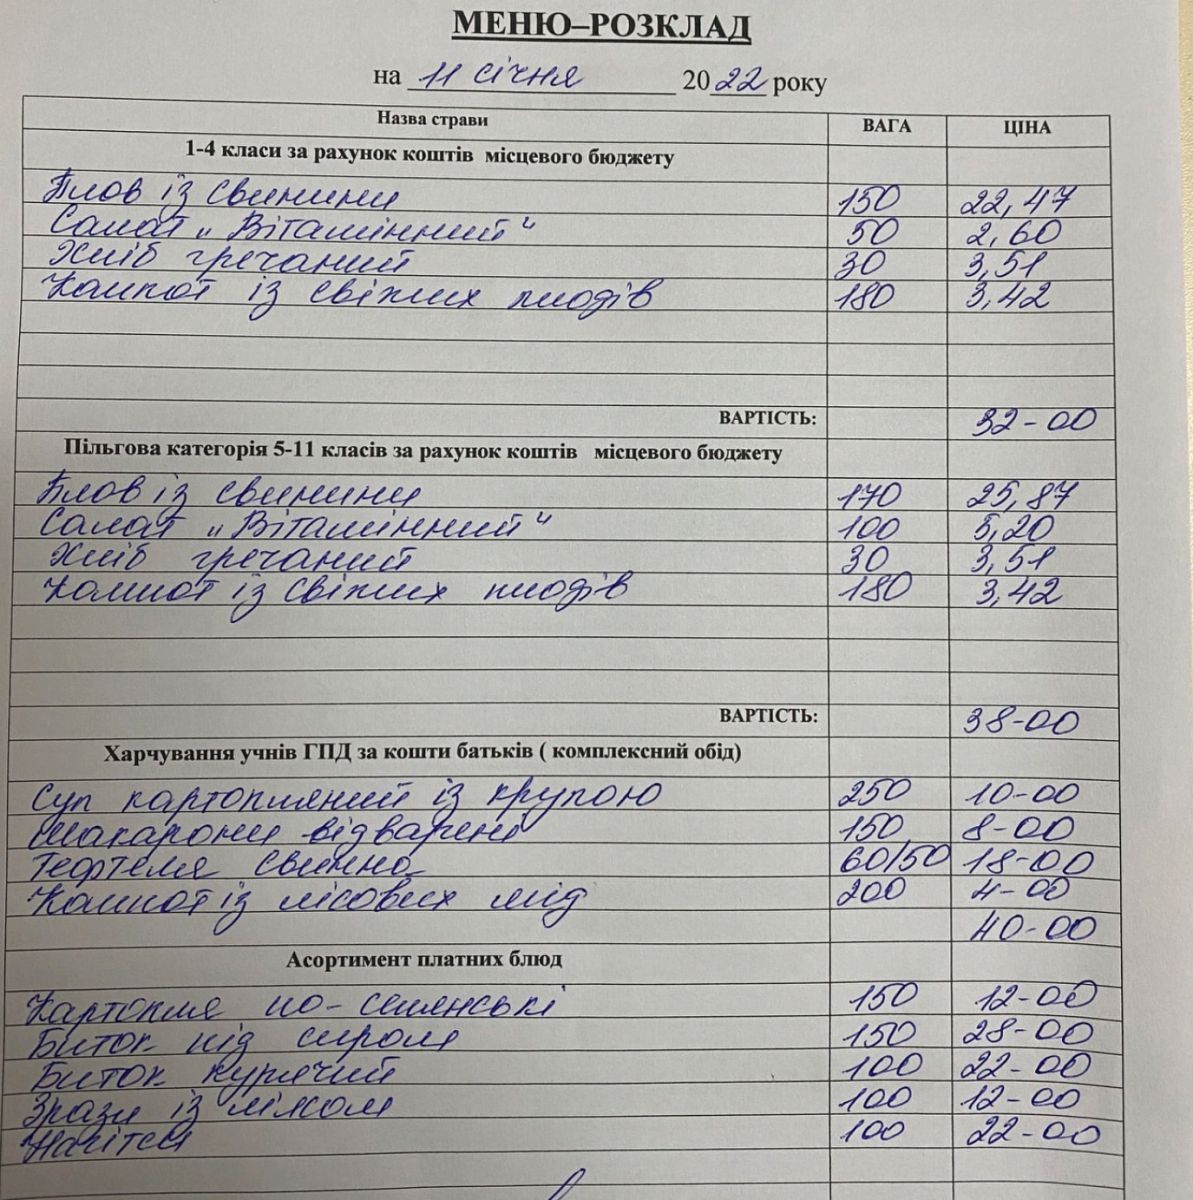 МЕНЮ–РОЗКЛАД
на 11 січня 2022 року
Назва страви ВАГА ЦІНА
1-4 класи за рахунок коштів місцевого бюджету
Плов із свинини 150 22,47
Салат „Вітамінний" 50 2,60
Хліб гречаний 30 3,51
Компот із свіжих плодів 180 3,42
ВАРТІСТЬ: 32-00
Пільгова категорія 5-11 класів за рахунок коштів місцевого бюджету
Плов із свинини 170 25,87
Салат „Вітамінний" 100 5,20
Хліб гречаний 30 3,51
Компот із свіжих плодів 180 3,42
ВАРТІСТЬ: 38-00
Харчування учнів ГПД за кошти батьків ( комплексний обід)
Суп картопляний із крупою 250 10-00
Макарони відварені 150 8-00
Тефтеля свинна 60/50 18-00
Компот із лісових ягід 200 4-00
40-00
Асортимент платних блюд
Картопля по-селянські 150 12-00
Биток під сиром 150 28-00
Биток курячий 100 22-00
Зрази із м'ясом 100 12-00
Нагітси 100 22-00